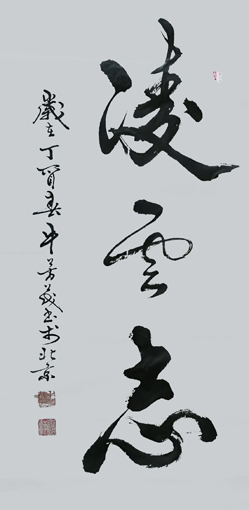 凌云志
歲在丁酉春书於北京